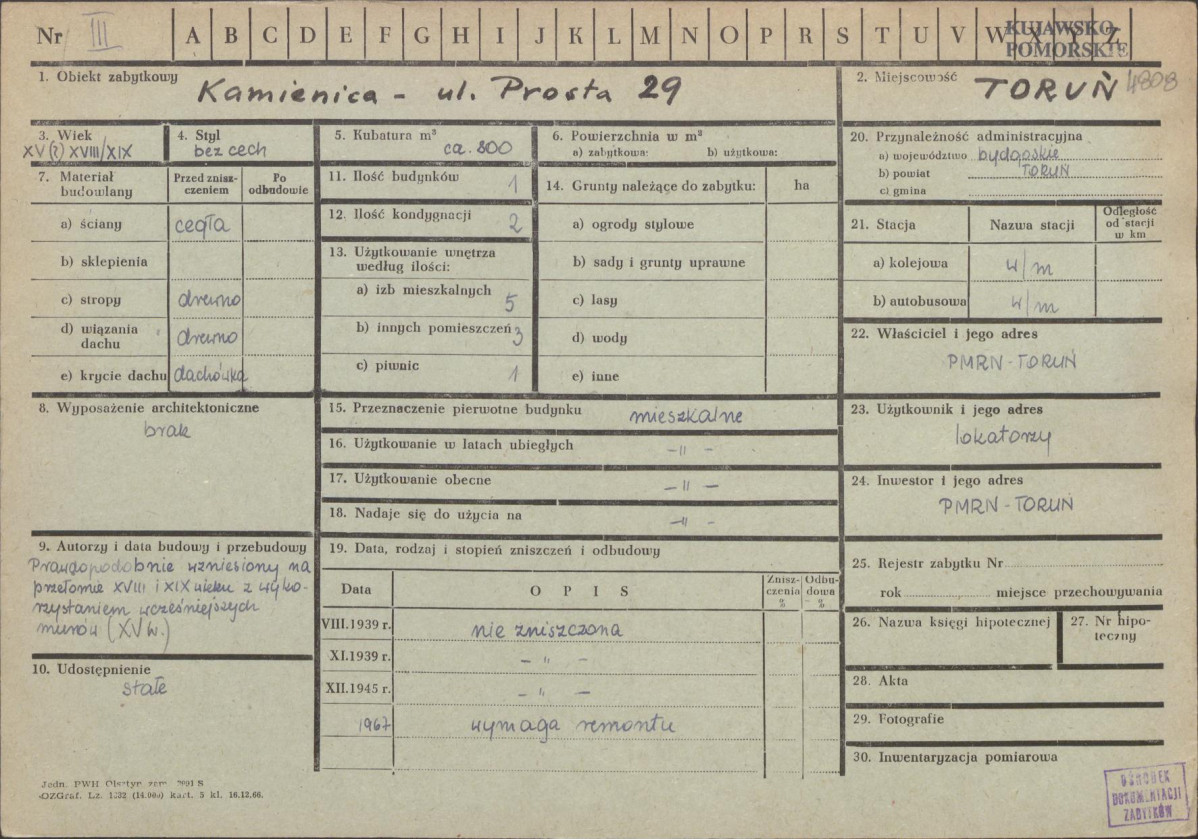 Nr III A B C D E F G H I J K L M N O P R S T U V W X Y Z
KUJAWSKO-
POMORSKIE
1. Obiekt zabytkowy
Kamienica - ul. Prosta 29
2. Miejscowość
TORUŃ 4808
3. Wiek
XV(?) XVIII/XIX
4. Styl
bez cech
5. Kubatura m³
ca. 800
6. Powierzchnia w m²
a) zabytkowa: b) użytkowa:
20. Przynależność administracyjna
a) województwo bydgoskie
b) powiat TORUŃ
c) gmina
7. Materiał
budowlany
Przed znisz-
czeniem
Po
odbudowie
a) ściany cegła
b) sklepienia
c) stropy drewno
d) wiązania
dachu drewno
e) krycie dachu dachówka
11. Ilość budynków 1
12. Ilość kondygnacji 2
13. Użytkowanie wnętrza
według ilości:
a) izb mieszkalnych 5
b) innych pomieszczeń 3
c) piwnic 1
14. Grunty należące do zabytku: ha
a) ogrody stylowe
b) sady i grunty uprawne
c) lasy
d) wody
e) inne
21. Stacja Nazwa stacji
Odległość
od stacji
w km
a) kolejowa w/m
b) autobusowa w/m
22. Właściciel i jego adres
PMRN-TORUŃ
8. Wyposażenie architektoniczne
brak
15. Przeznaczenie pierwotne budynku mieszkalne
16. Użytkowanie w latach ubiegłych - " -
17. Użytkowanie obecne - " -
18. Nadaje się do użycia na - " -
23. Użytkownik i jego adres
lokatorzy
24. Inwestor i jego adres
PMRN-TORUŃ
9. Autorzy i data budowy i przebudowy
Prawdopodobnie wzniesiony na
przełomie XVIII i XIX wieku z wyko-
rzystaniem wcześniejszych
murów (XV w.)
10. Udostępnienie
stałe
19. Data, rodzaj i stopień zniszczeń i odbudowy
Data O P I S
Znisz-
czenia
%
Odbu-
dowa
%
VIII.1939 r. nie zniszczona
XI.1939 r. - " -
XII.1945 r. - " -
1967 wymaga remontu
25. Rejestr zabytku Nr
rok miejsce przechowywania
26. Nazwa księgi hipotecznej
27. Nr hipo-
teczny
28. Akta
29. Fotografie
30. Inwentaryzacja pomiarowa
Jedn. PWH Olsztyn zam.
OZGraf. Lz. 1332 (14.000) kart. 5 kl. 16.12.66.
OŚRODEK
DOKUMENTACJI
ZABYTKÓW